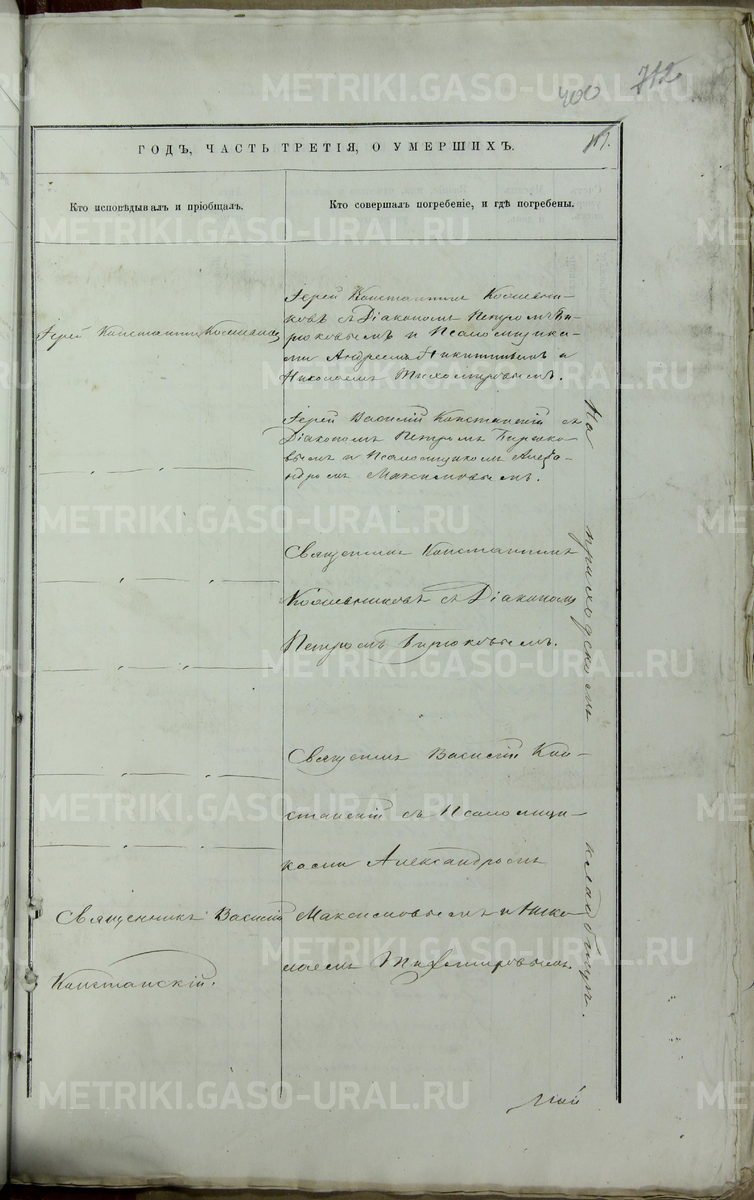 400 712
ГОДЪ, ЧАСТЬ ТРЕТІЯ, О УМЕРШИХЪ.
Кто исповѣдывалъ и пріобщалъ.
Кто совершалъ погребеніе, и гдѣ погребены.
Іерей Константинъ
Іерей Константинъ Кожевни-
ковъ съ Діакономъ Петромъ Би-
рюковымъ и Псаломщика-
ми Андреемъ Никитинымъ и
Николаемъ Тихомировымъ.
Іерей Василій Констанскій съ
Діакономъ Петромъ Бирюко-
вымъ и Псаломщикомъ Алекса-
ндромъ Максимовымъ.
Священникъ Константинъ
Кожевниковъ съ Діакономъ
Петромъ Бирюковымъ.
Священникъ Василій Кон-
станскій съ Псаломщи-
ками Александромъ
Максимовымъ и Нико-
лаемъ Тихомировымъ.
Священникъ Василій
Констанскій.
На приходскомъ кладбищѣ.
Май
METRIKI.GASO-URAL.RU